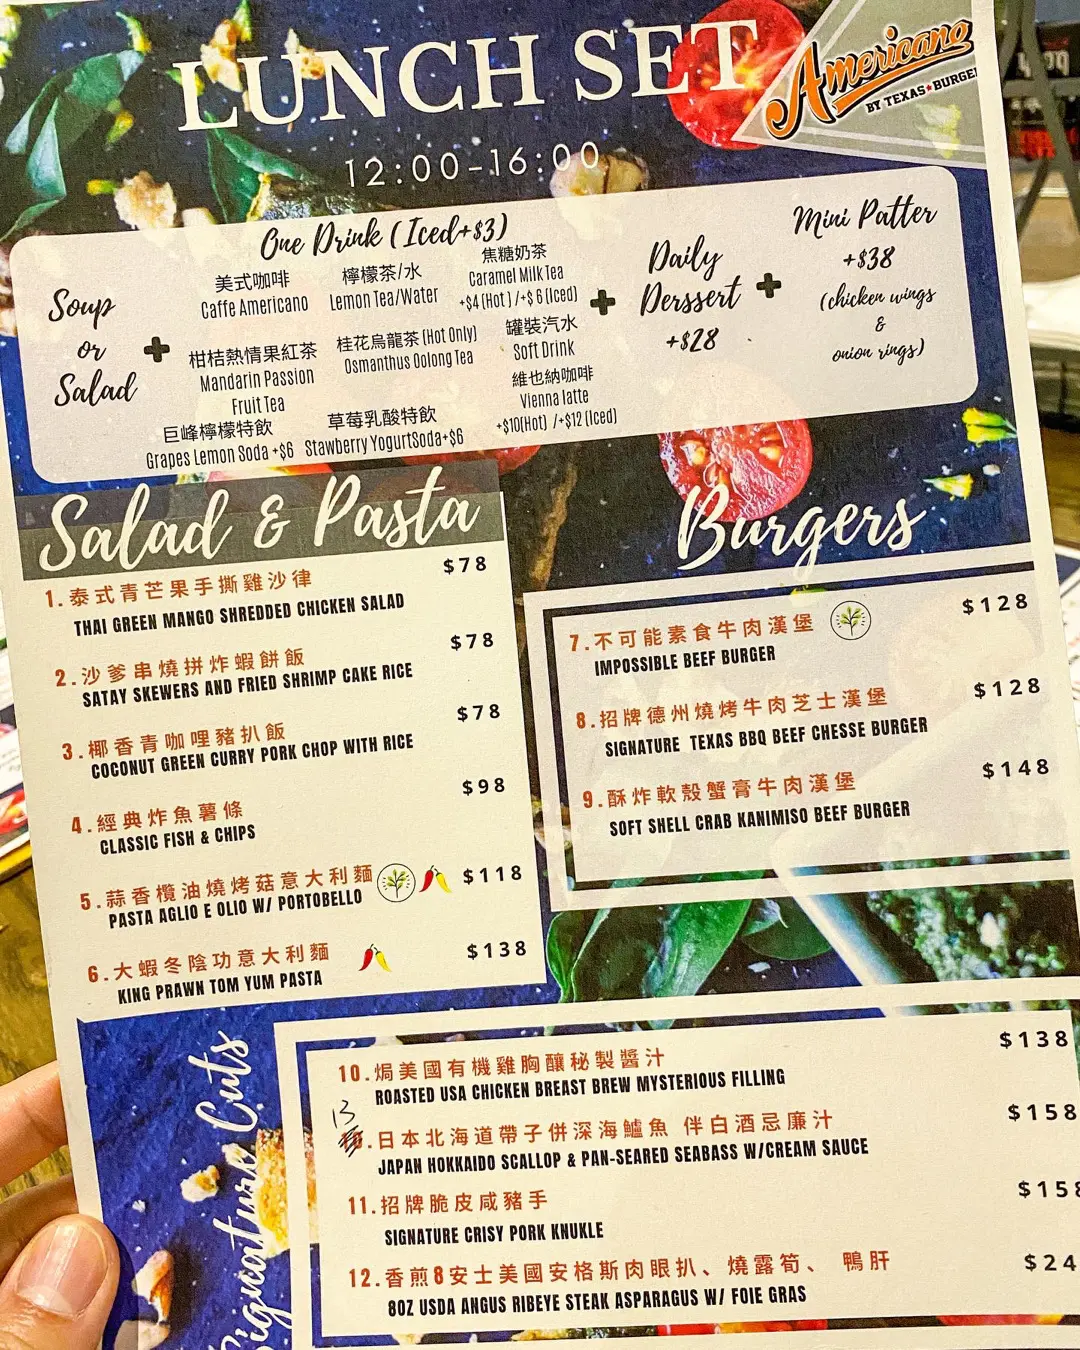 LUNCH SET
Americano
BY TEXAS★BURGE
12:00-16:00
Soup
or
Salad
+
One Drink (Iced+$3)
美式咖啡
Caffe Americano
檸檬茶/水
Lemon Tea/Water
焦糖奶茶
Caramel Milk Tea
+$4 (Hot) /+$ 6 (Iced)
柑桔熱情果紅茶
Mandarin Passion
Fruit Tea
桂花烏龍茶 (Hot Only)
Osmanthus Oolong Tea
罐裝汽水
Soft Drink
巨峰檸檬特飲
Grapes Lemon Soda +$6
草莓乳酸特飲
Stawberry YogurtSoda+$6
維也納咖啡
Vienna latte
+$10(Hot) /+$12 (Iced)
+
Daily
Derssert
+$28
+
Mini Patter
+$38
(chicken wings
&
onion rings)
Salad & Pasta
1.泰式青芒果手撕雞沙律 $78
THAI GREEN MANGO SHREDDED CHICKEN SALAD
2.沙爹串燒拼炸蝦餅飯 $78
SATAY SKEWERS AND FRIED SHRIMP CAKE RICE
3.椰香青咖哩豬扒飯 $78
COCONUT GREEN CURRY PORK CHOP WITH RICE
4.經典炸魚薯條 $98
CLASSIC FISH & CHIPS
5.蒜香欖油燒烤菇意大利麵 $118
PASTA AGLIO E OLIO W/ PORTOBELLO
6.大蝦冬陰功意大利麵 $138
KING PRAWN TOM YUM PASTA
Burgers
7.不可能素食牛肉漢堡 $128
IMPOSSIBLE BEEF BURGER
8.招牌德州燒烤牛肉芝士漢堡 $128
SIGNATURE TEXAS BBQ BEEF CHESSE BURGER
9.酥炸軟殼蟹膏牛肉漢堡 $148
SOFT SHELL CRAB KANIMISO BEEF BURGER
Signature Cuts
10.焗美國有機雞胸釀秘製醬汁 $138
ROASTED USA CHICKEN BREAST BREW MYSTERIOUS FILLING
13
.日本北海道帶子併深海鱸魚 伴白酒忌廉汁 $158
JAPAN HOKKAIDO SCALLOP & PAN-SEARED SEABASS W/CREAM SAUCE
11.招牌脆皮咸豬手 $158
SIGNATURE CRISY PORK KNUKLE
12.香煎8安士美國安格斯肉眼扒、燒露筍、 鴨肝 $24
8OZ USDA ANGUS RIBEYE STEAK ASPARAGUS W/ FOIE GRAS